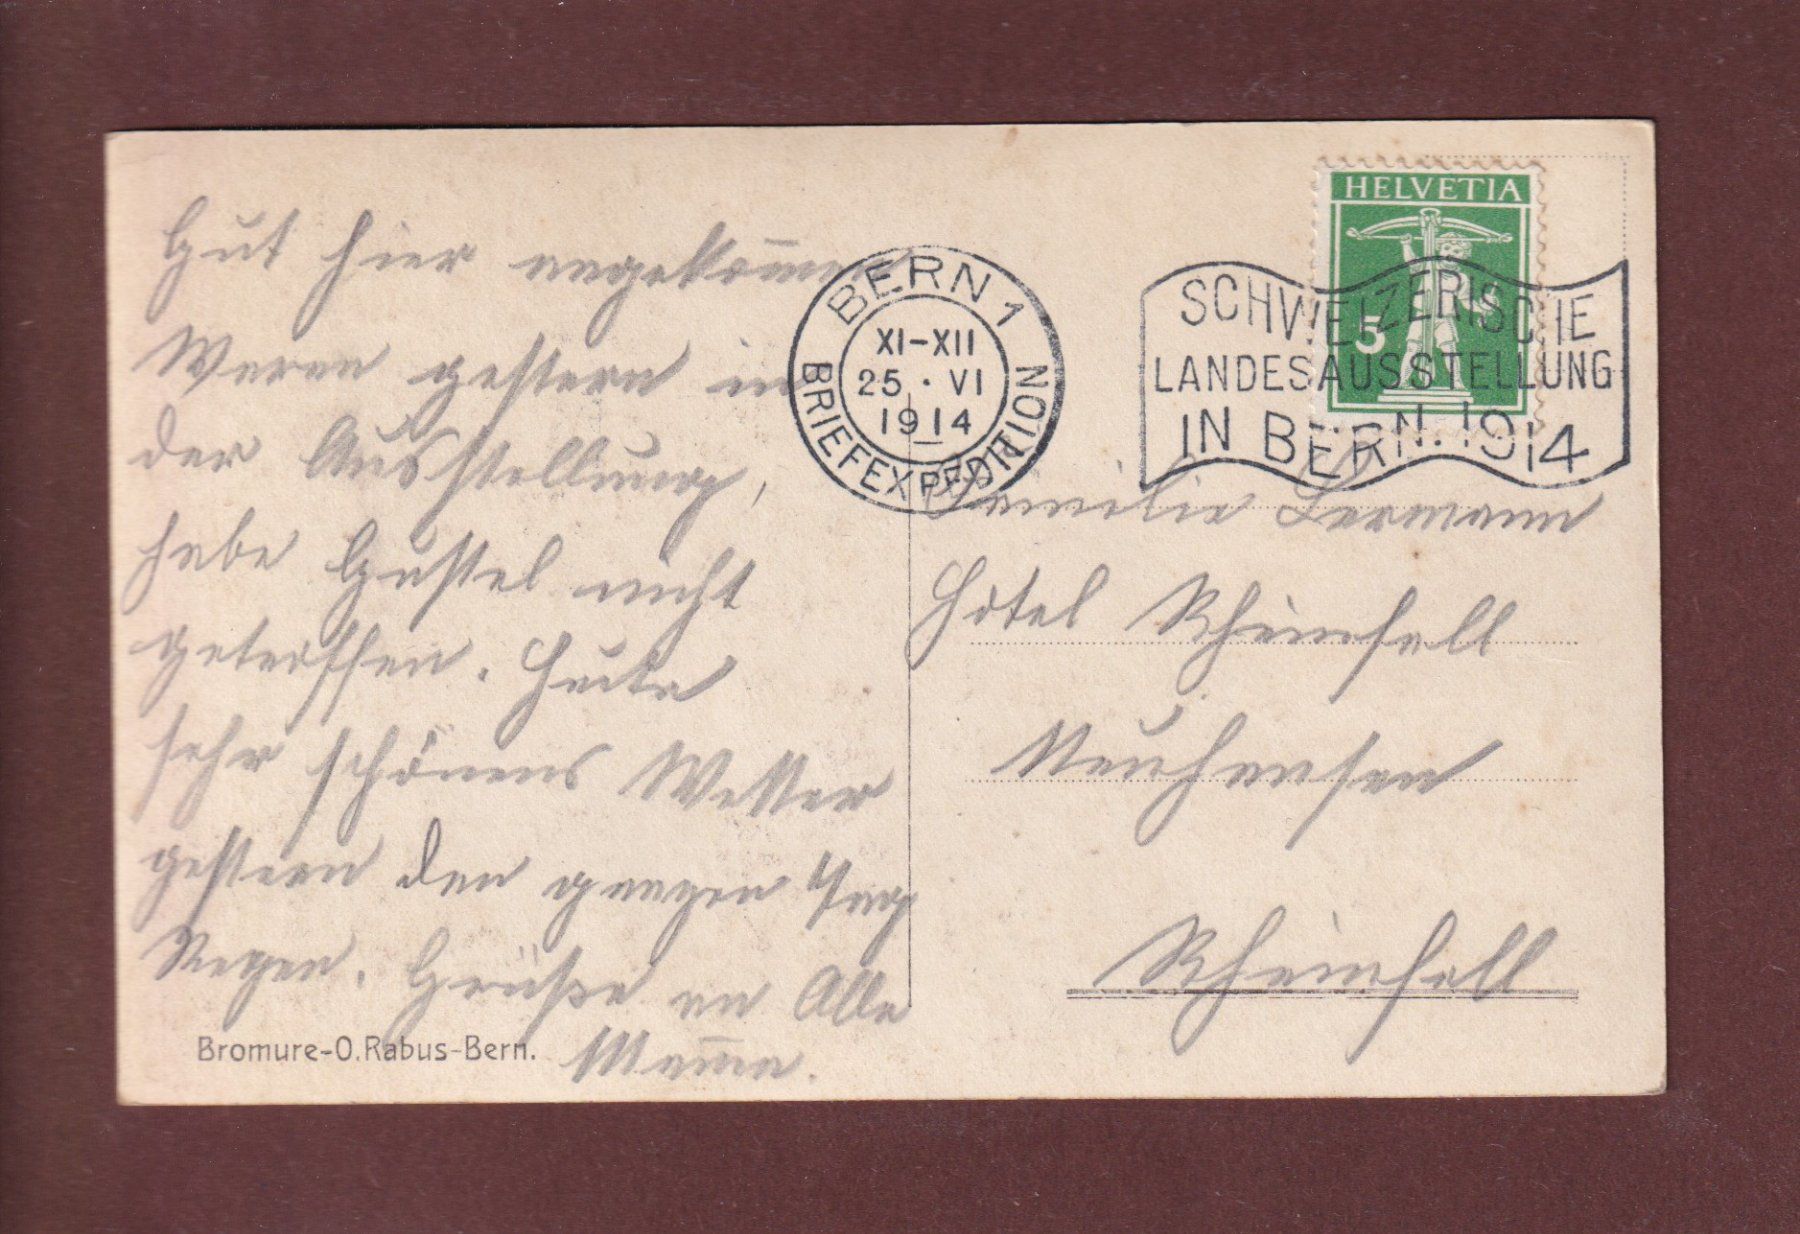 Gut hier angekom̅en
Waren gestern in
der Ausstellung,
habe Gustel nicht
getroffen. Heute
sehr schönens Wetter
gestern den ganzen Tag
Regen. Grüße an Alle
Mam̅a.
Bromure-O.Rabus-Bern.
BERN 1
XI-XII
25 · VI
1914
BRIEFEXPEDITION
HELVETIA
5
SCHWEIZERISCHE
LANDESAUSSTELLUNG
IN BERN. 1914
Familie Lermann
Hotel Rheinfall
Neuhausen
Rheinfall